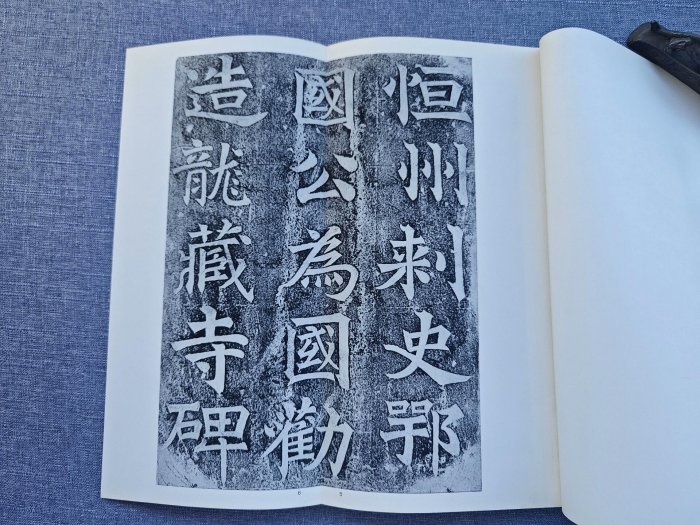 恒州刺史鄂
國公為國勸
造龍藏寺碑
6 5